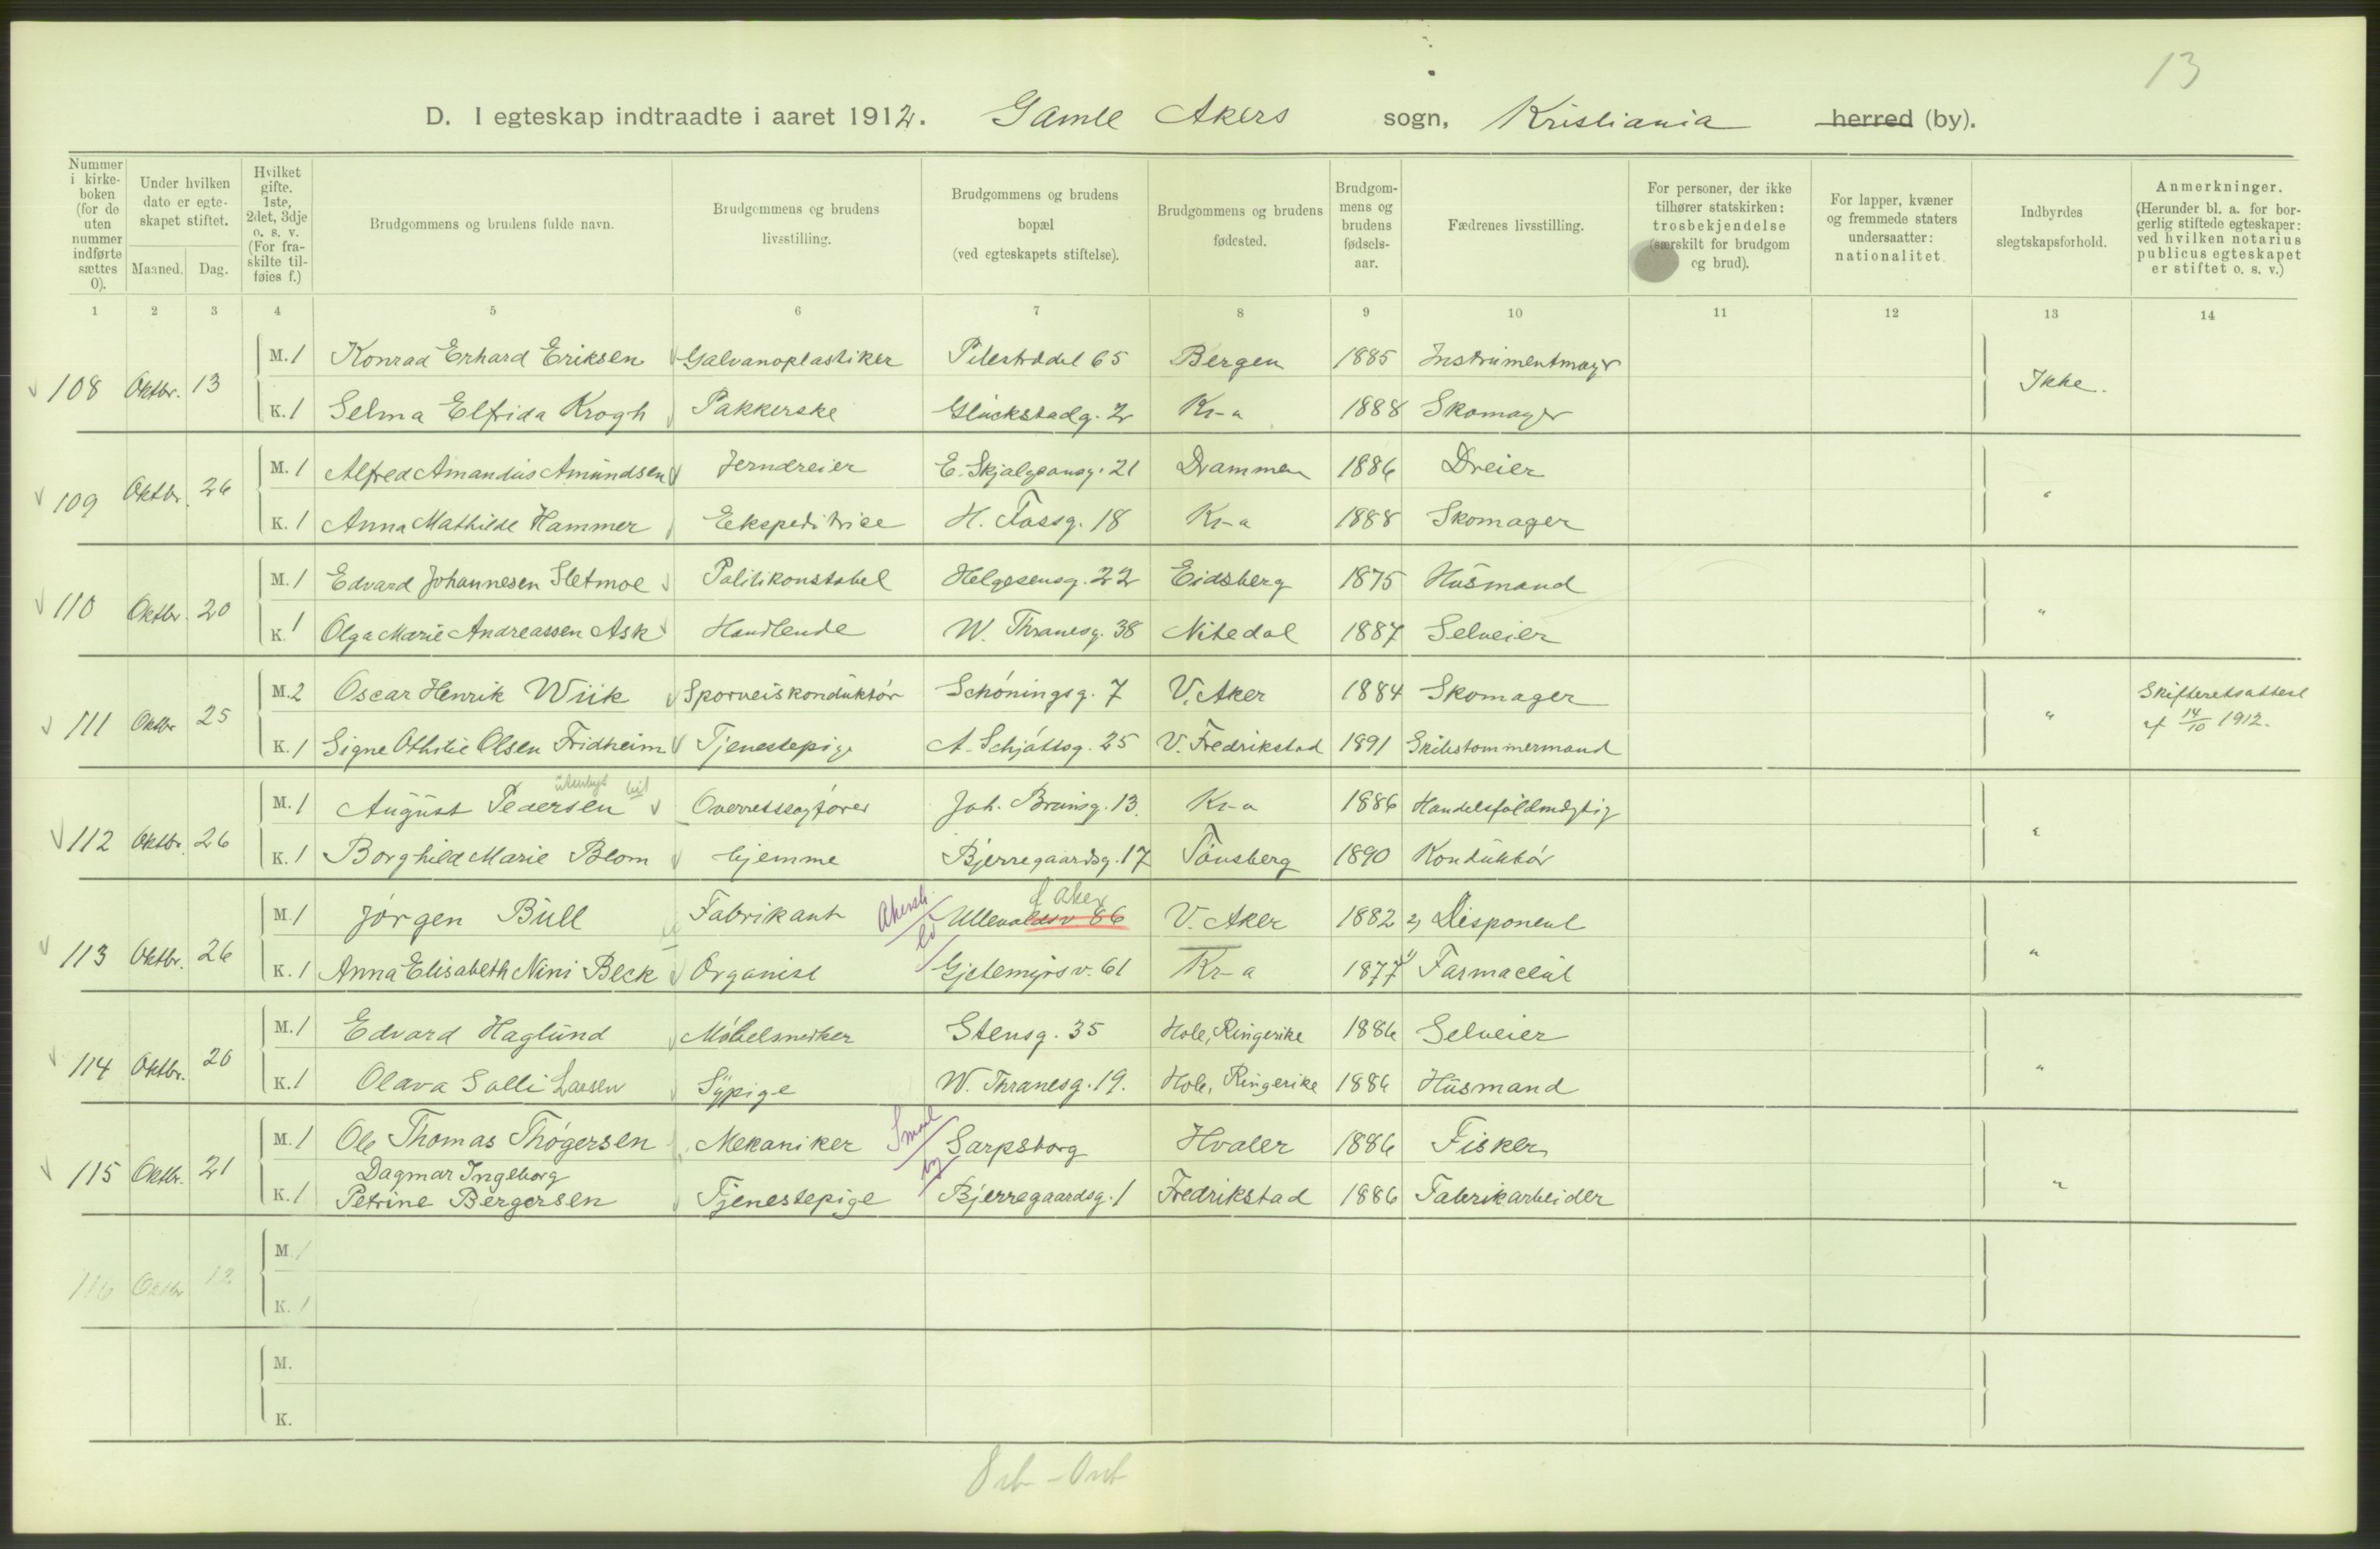 13
D. I egteskap indtraadte i aaret 1912. Gamle Akers sogn, Kristiania herred (by).
Nummer i kirke-boken (for de uten nummer indførte sættes 0).
Under hvilken dato er egte-skapet stiftet.
Maaned. Dag.
Hvilket gifte. 1ste, 2det, 3dje o. s. v. (For fra-skilte til-føies f.)
Brudgommens og brudens fulde navn.
Brudgommens og brudens livsstilling.
Brudgommens og brudens bopæl (ved egteskapets stiftelse).
Brudgommens og brudens fødested.
Brudgom-mens og brudens fødsels-aar.
Fædrenes livsstilling.
For personer, der ikke tilhører statskirken: trosbekjendelse (særskilt for brudgom og brud).
For lapper, kvæner og fremmede staters undersaatter: nationalitet
Indbyrdes slegtskapsforhold.
Anmerkninger. (Herunder bl. a. for bor-gerlig stiftede egteskaper: ved hvilken notarius publicus egteskapet er stiftet o. s. v.)
1 2 3 4 5 6 7 8 9 10 11 12 13 14
M. 1 Konrad Erhard Eriksen Galvanoplastiker Pilestrædet 65 Bergen 1885 Instrumentmager
108 Oktbr. 13 Ikke.
K. 1 Selma Elfrida Krogh Pakkerske Glückstadg. 2 Kr-a 1888 Skomager
M. 1 Alfred Amandus Amundsen Jerndreier E. Skjalgsonsg. 21 Drammen 1886 Dreier
109 Oktbr. 26 "
K. 1 Anna Mathilde Hammer Eekspeditrise H. Fossg. 18 Kr-a 1888 Skomager
M. 1 Edvard Johannesen Sletmoe Politikonstabel Helgesensg. 22 Eidsberg 1875 Husmand
110 Oktbr. 20 "
K. 1 Olga Marie Andreassen Ask Handlende W. Thranesg. 38 Nitedal 1887 Selveier
M. 2 Oscar Henrik Wiik Sporveiskonduktør Schöningsg. 7 V. Aker 1884 Skomager Skifteretsattest
111 Oktbr 25 " af 14/10 1912.
K. 1 Signe Othilie Olsen Fridheim Tjenestepige A. Schjøttsg. 25 V. Fredrikstad 1891 Skibstømmermand
M. 1 August Pedersen Overretssagfører Joh. Brunsg. 13. Kr-a 1886 Handelsfuldmægtig
112 Oktbr. 26 "
K. 1 Borghild Marie Blom hjemme Bjerregaardsg. 17 Tönsberg 1890 Konduktør
Aker
M. 1 Jørgen Bull Fabrikant Ullevaldsv 86 V. Aker 1882 2) Disponent
113 Oktbr. 26 "
K. 1 Anna Elisabeth Nini Beck Organist Gjetemyrsv. 61 Kr-a 1877 1) Farmaceut
M. 1 Edvard Haglund Møbelsnedker Stensg. 35 Hole, Ringerike 1886 Selveier
114 Oktbr. 26 "
K. 1 Olava Solli Larsen Sypige W. Thranesg. 19. Hole, Ringerike 1886 Husmand
M. 1 Ole Thomas Thøgersen Mekaniker Sarpsborg Hvaler 1886 Fisker
115 Oktbr. 21 "
Dagmar Ingeborg
K. 1 Petrine Bergersen Tjenestepige Bjerregaardsg. 1 Fredrikstad 1886 Fabrikarbeider
M. 1
116 Oktbr 12
K. 1
M.
K.